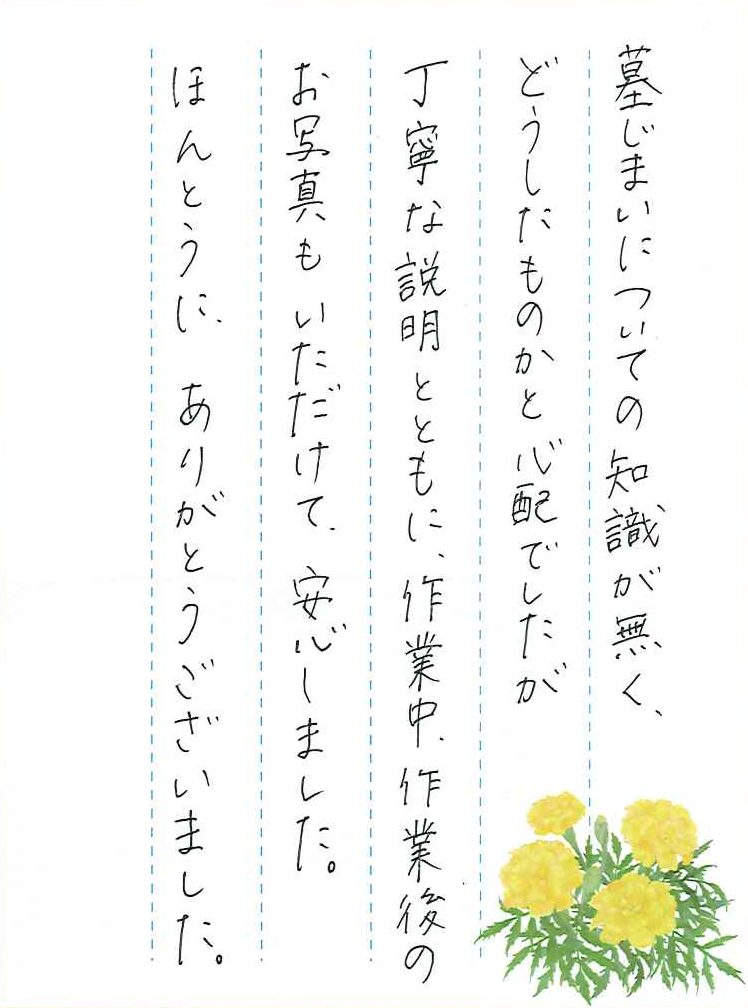 墓じまいについての知識が無く、
どうしたものかと心配でしたが
丁寧な説明とともに、作業中、作業後の
お写真もいただけて、安心しました。
ほんとうに、ありがとうございました。